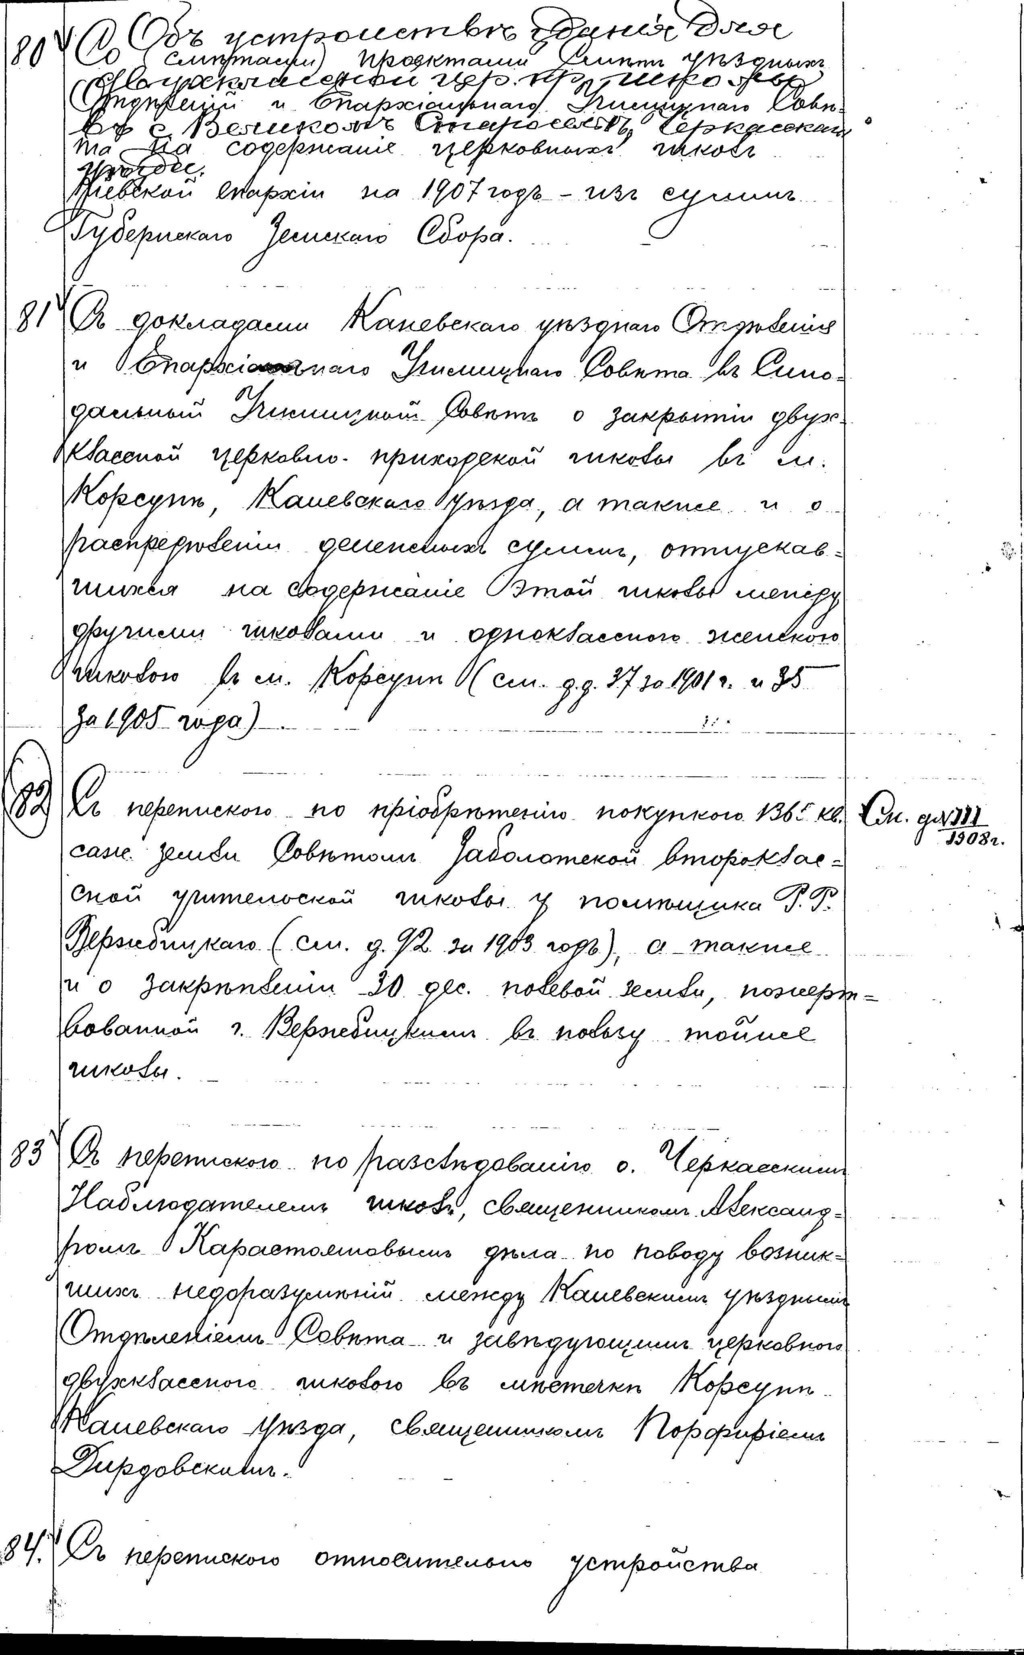 80 Объ устройствѣ зданія для
Со (смѣтами) проектами смѣтъ уѣздныхъ
двухклассной цер. пр. школы
Отдѣленій и Епархіальнаго Училищнаго Совѣ-
въ с. Великомъ Старосельѣ, Черкасскаго
та на содержаніе церковныхъ школъ
уѣзда.
Кіевской епархіи на 1907 годъ – изъ суммъ
Губернскаго Земскаго Сбора.
81 Съ докладами Каневскаго уѣзднаго Отдѣленія
и Епархіальнаго Училищнаго Совѣта въ Сино-
дальный Училищный Совѣтъ о закрытіи двух-
классной церковно-приходской школы въ м.
Корсунѣ, Каневскаго уѣзда, а также и о
распредѣленіи денежныхъ суммъ, отпускав-
шихся на содержаніе этой школы между
другими школами и одноклассною женскою
школою въ м. Корсунѣ (см. д.д. 37 за 1901 г. и 35
за 1905 года)
82 Съ перепискою по пріобрѣтенію покупкою 1365 кв. См. д. № 111
1908 г.
саж. земли Совѣтомъ Заболотской второклас-
сной учительской школы у помѣщика Р. Р.
Вержбицкаго (см. д. 92 за 1903 годъ), а также
и о закрѣпленіи 30 дес. полевой земли, пожерт-
вованной г. Вержбицкимъ въ пользу тойже
школы.
83 Съ перепискою по разслѣдованію о. Черкасскимъ
Наблюдателемъ школъ, священникомъ Александ-
ромъ Карастояновымъ дѣла по поводу возник-
шихъ недоразумѣній между Каневскимъ уѣзднымъ
Отдѣленіемъ Совѣта и завѣдующимъ церковною
двухклассною школою въ мѣстечкѣ Корсунѣ
Каневскаго уѣзда, священникомъ Порфиріемъ
Дирдовскимъ.
84. Съ перепискою относительно устройства